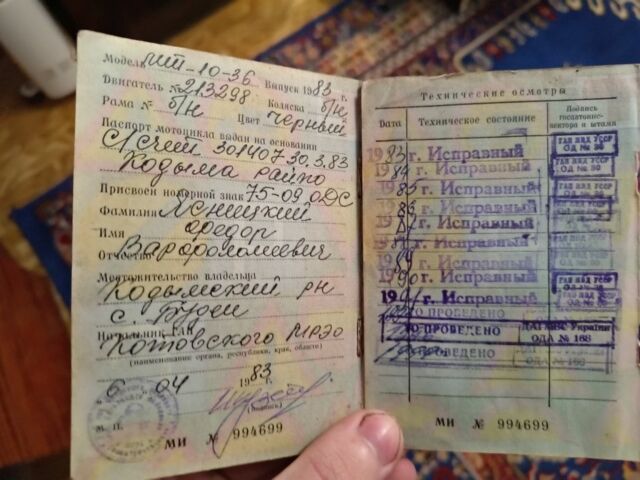 Модель ИЖ-10-36 Выпуск 1983 г.
Двигатель № 213298 Коляска б/н
Рама № б/н Цвет черный
Паспорт мотоцикла выдан на основании
С/счет 301407 30.3.83
Кодыма райпо
Присвоен номерной знак 75-09 ОДС
Фамилия Ясницкий
Имя Федор
Отчество Варфоломеевич
Местожительство владельца
Кодымский рн
с.
Начальник ГАИ
Котовского МРЭО
(наименование органа, республики, края, области)
6 04 1983 г.
(подпись)
М. П.
МИ № 994699
Технические осмотры
Дата Техническое состояние Подпись госавтоинспектора и штамп
1983 г. Исправный ГАИ МВД УССР ОД № 30
1984 г. Исправный
1985 г. Исправный ГАИ МВД УССР ОД № 30
1986 г. Исправный
1987 г. Исправный
г. Исправный
1989 г. Исправный
1990 г. Исправный ГАИ МВД УССР
1991 г. Исправный
ТО ПРОВЕДЕНО
ТО ПРОВЕДЕНО ДАІ МВС України ОДА № 168
ПРОВЕДЕНО № 168
МИ № 994699